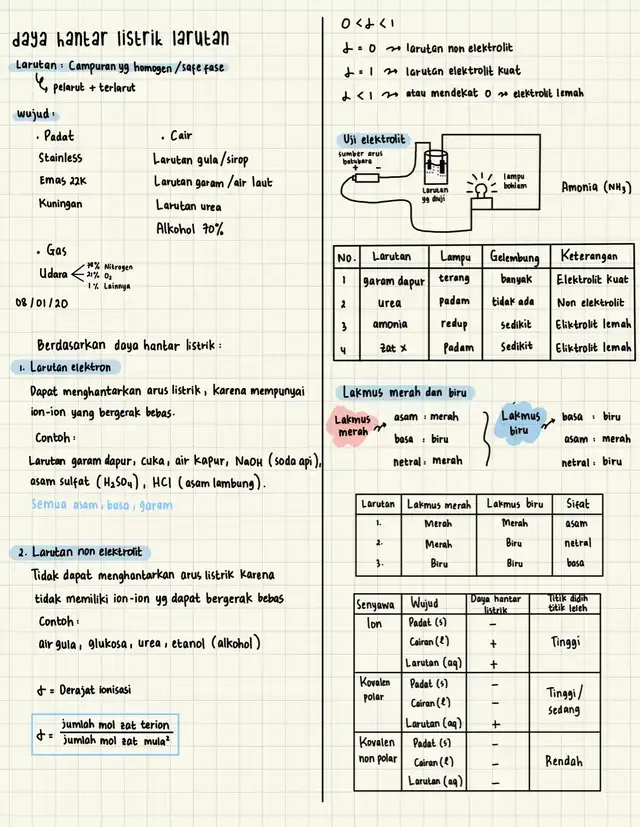 daya hantar listrik larutan
Larutan : Campuran yg homogen /safe fase
pelarut + terlarut
wujud :
• Padat
Stainless
Emas 22K
Kuningan
• Cair
Larutan gula/sirop
Larutan garam /air laut
Larutan urea
Alkohol 70%
• Gas
Udara
78% Nitrogen
21% O₂
1% Lainnya
08/01/20
Berdasarkan daya hantar listrik :
1. Larutan elektron
Dapat menghantarkan arus listrik, karena mempunyai
ion-ion yang bergerak bebas.
Contoh :
Larutan garam dapur, cuka, air kapur, NaOH (soda api),
asam sulfat (H₂SO₄), HCl (asam lambung).
Semua asam, basa, garam
2. Larutan non elektrolit
Tidak dapat menghantarkan arus listrik karena
tidak memiliki ion-ion yg dapat bergerak bebas
Contoh :
air gula, glukosa, urea, etanol (alkohol)
α = Derajat ionisasi
α = jumlah mol zat terion
jumlah mol zat mula²
0 < α < 1
α = 0 ⇝ larutan non elektrolit
α = 1 ⇝ larutan elektrolit kuat
α < 1 ⇝ atau mendekat 0 ⇝ elektrolit lemah
Uji elektrolit
sumber arus
batubara
+ -
+ -
Larutan
yg diuji
lampu
bohlam
Amonia (NH₃)
No. Larutan Lampu Gelembung Keterangan
1 garam dapur terang banyak Elektrolit kuat
2 urea padam tidak ada Non elektrolit
3 amonia redup sedikit Eliktrolit lemah
4 zat x Padam Sedikit Eliktrolit lemah
Lakmus merah dan biru
Lakmus
merah
asam : merah
basa : biru
netral : merah
Lakmus
biru
basa : biru
asam : merah
netral : biru
Larutan Lakmus merah Lakmus biru Sifat
1. Merah Merah asam
2. Merah Biru netral
3. Biru Biru basa
Senyawa Wujud Daya hantar listrik Titik didih titik leleh
Ion Padat (s) -
Cairan (l) + Tinggi
Larutan (aq) +
Kovalen polar Padat (s) -
Cairan (l) - Tinggi / sedang
Larutan (aq) +
Kovalen non polar Padat (s) -
Cairan (l) - Rendah
Larutan (aq) -